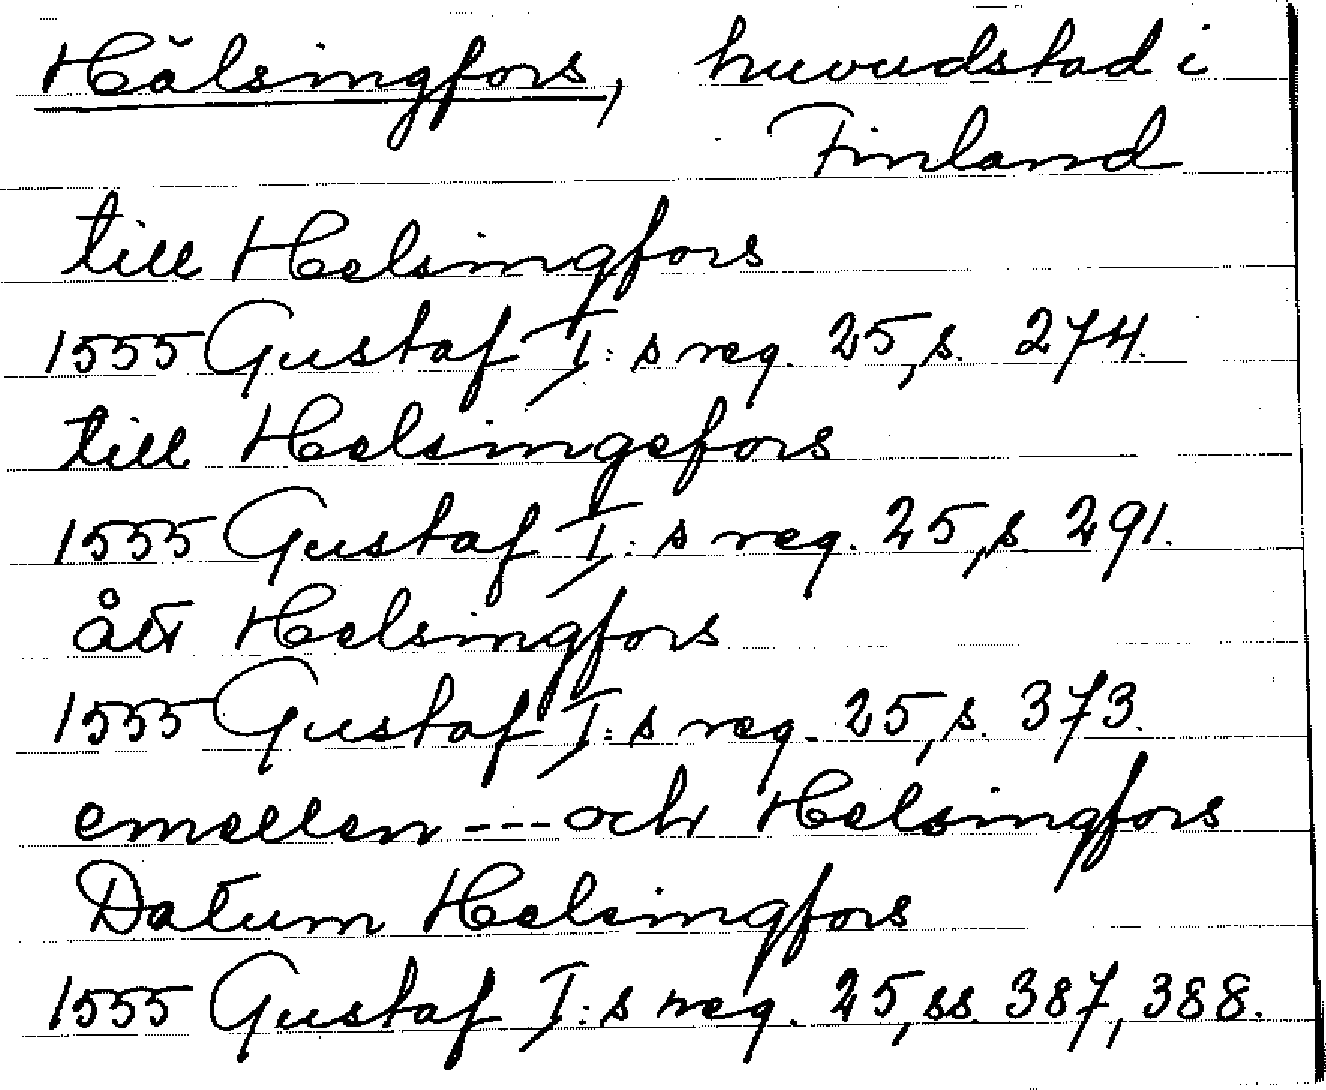 Hälsingfors, huvudstad i
Finland
till Helsingfors
1555 Gustaf I:s reg. 25, s. 274.
till Helsingefors
1555 Gustaf I:s reg. 25, s. 291.
ått Helsingfors
1555 Gustaf I:s reg. 25, s. 373.
emellen --- och Helsingfors
Datum Helsingfors
1555 Gustaf I:s reg. 25, ss. 387, 388.